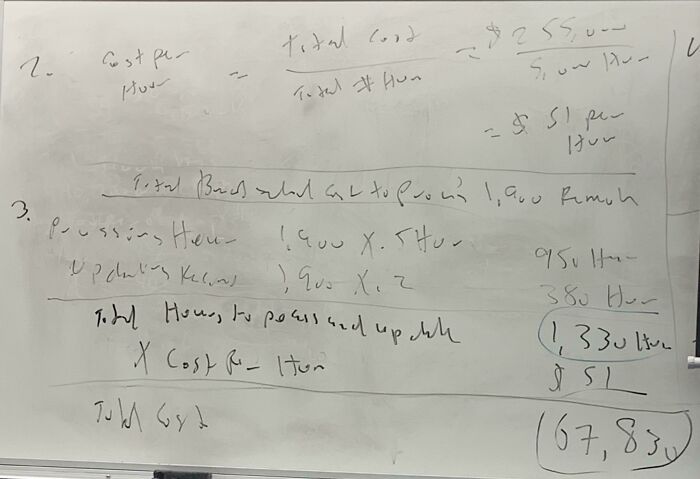 2. Cost per Hour = Total Cost / Total # Hour = $255,000 / 5,000 Hour
= $51 per Hour
3. Total Budgeted cost to Process 1,900 Removals
Processing Hour 1,900 X .5 Hour 950 Hour
Updating Record 1,900 X .2 380 Hour
Total Hours to process and update 1,330 Hour
X Cost Per Hour $51
Total Cost 67,830